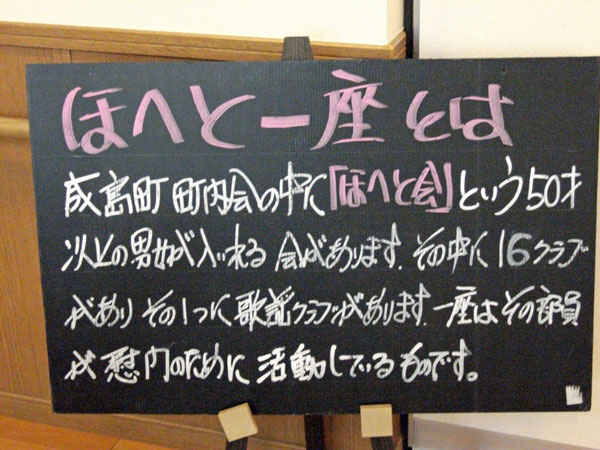 ほへと一座とは
成島町町内会の中に「ほへと会」という50才
以上の男女が入れる会があります.その中に16クラブ
があり その1つに歌謡クラブがあります.一座はその部員
が慰問のために活動しているものです。